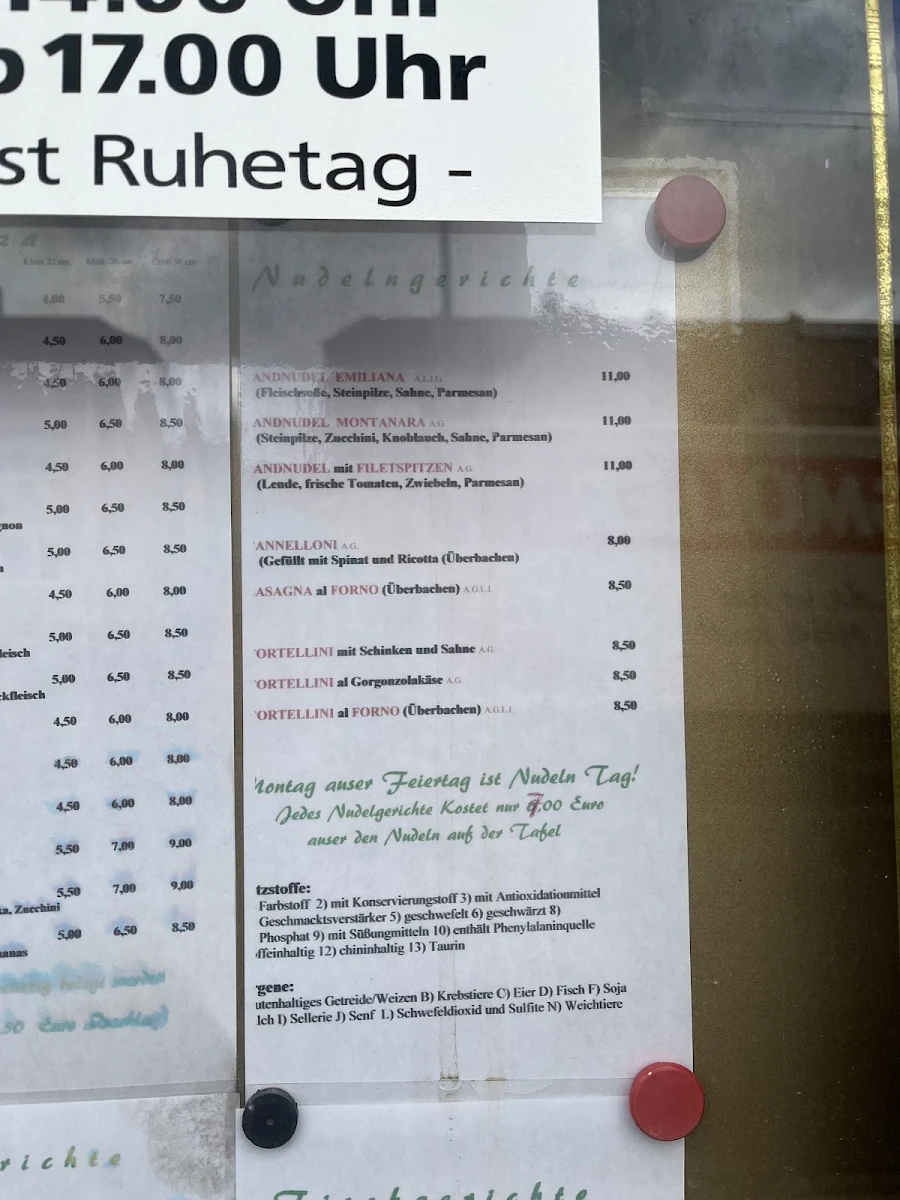 14.00 Uhr
17.00 Uhr
st Ruhetag -
Klein 22 cm Mittl. 26 cm Groß 30 cm
4,00 5,50 7,50
4,50 6,00 8,00
4,50 6,00 8,00
5,00 6,50 8,50
4,50 6,00 8,00
5,00 6,50 8,50
gnon
5,00 6,50 8,50
4,50 6,00 8,00
5,00 6,50 8,50
leisch
5,00 6,50 8,50
ckfleisch
4,50 6,00 8,00
4,50 6,00 8,00
4,50 6,00 8,00
5,50 7,00 9,00
5,50 7,00 9,00
ka, Zucchini
5,00 6,50 8,50
anas
belegt werden
50 Euro
richte
Nudelngerichte
ANDNUDEL EMILIANA 11,00
(Fleischsoße, Steinpilze, Sahne, Parmesan)
ANDNUDEL MONTANARA A.G. 11,00
(Steinpilze, Zucchini, Knoblauch, Sahne, Parmesan)
ANDNUDEL mit FILETSPITZEN A.G. 11,00
(Lende, frische Tomaten, Zwiebeln, Parmesan)
ANNELLONI A.G. 8,00
(Gefüllt mit Spinat und Ricotta (Überbachen)
ASAGNA al FORNO (Überbachen) 8,50
ORTELLINI mit Schinken und Sahne A.G. 8,50
ORTELLINI al Gorgonzolakäse A.G. 8,50
ORTELLINI al FORNO (Überbachen) 8,50
Montag auser Feiertag ist Nudeln Tag!
Jedes Nudelgerichte Kostet nur 7,00 Euro
auser den Nudeln auf der Tafel
tzstoffe:
Farbstoff 2) mit Konservierungstoff 3) mit Antioxidationmittel
Geschmacksverstärker 5) geschwefelt 6) geschwärzt 8)
Phosphat 9) mit Süßungmitteln 10) enthält Phenylalaninquelle
ffeinhaltig 12) chininhaltig 13) Taurin
gene:
utenhaltiges Getreide/Weizen B) Krebstiere C) Eier D) Fisch F) Soja
lch I) Sellerie J) Senf L) Schwefeldioxid und Sulfite N) Weichtiere
Fischgerichte